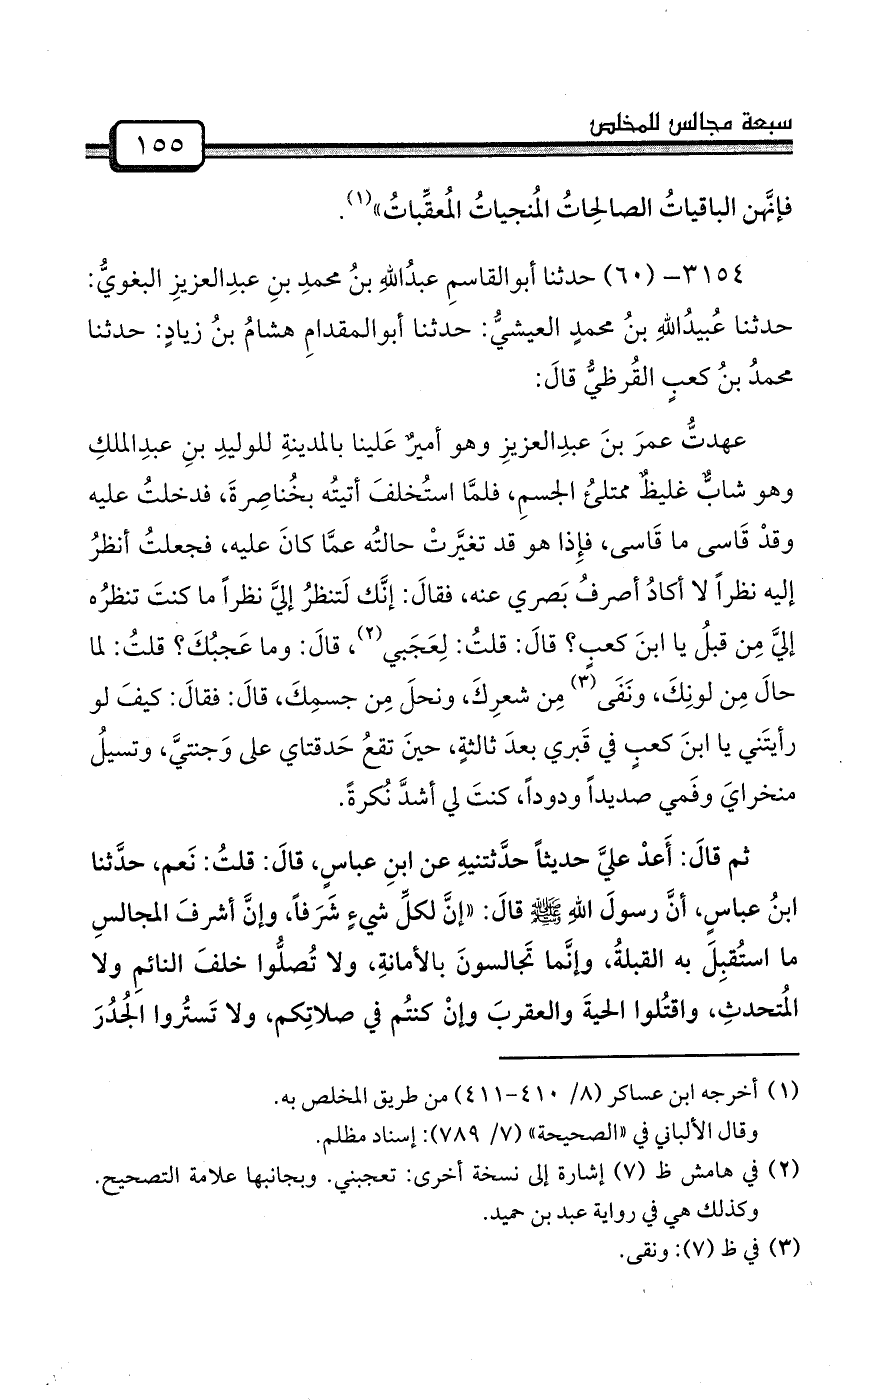 سبعة مجالس للمخلص
١٥٥
فإنَّهن الباقياتُ الصالحاتُ المُنجياتُ المُعقِّباتُ»(١).
٣١٥٤– (٦٠) حدثنا أبوالقاسمِ عبدُاللهِ بنُ محمدِ بنِ عبدِالعزيزِ البغويُّ:
حدثنا عُبيدُاللهِ بنُ محمدٍ العيشيُّ: حدثنا أبوالمقدامِ هشامُ بنُ زيادٍ: حدثنا
محمدُ بنُ كعبٍ القُرظيُّ قالَ:
عهدتُّ عمرَ بنَ عبدِالعزيزِ وهو أميرٌ عَلينا بالمدينةِ للوليدِ بنِ عبدِالملكِ
وهو شابٌّ غليظٌ ممتلئُ الجسمِ، فلمَّا استُخلفَ أتيتُه بخُناصِرةَ، فدخلتُ عليه
وقدْ قَاسى ما قَاسى، فإِذا هو قد تغيَّرتْ حالتُه عمَّا كانَ عليه، فجعلتُ أنظرُ
إليه نظراً لا أكادُ أصرفُ بَصري عنه، فقالَ: إنَّك لَتنظرُ إليَّ نظراً ما كنتَ تنظرُه
إليَّ مِن قبلُ يا ابنَ كعبٍ؟ قالَ: قلتُ: لِعَجَبي(٢)، قالَ: وما عَجبُكَ؟ قلتُ: لما
حالَ مِن لونِكَ، ونَفَى(٣) مِن شعرِكَ، ونحلَ مِن جسمِكَ، قالَ: فقالَ: كيفَ لو
رأيتَني يا ابنَ كعبٍ في قَبري بعدَ ثالثةٍ، حينَ تقعُ حَدقتاي على وَجنتيَّ، وتسيلُ
منخرايَ وفَمي صديداً ودوداً، كنتَ لي أشدَّ نُكرةً.
ثم قالَ: أَعدْ عليَّ حديثاً حدَّثتنيهِ عن ابنِ عباسٍ، قالَ: قلتُ: نَعم، حدَّثنا
ابنُ عباسٍ، أنَّ رسولَ اللهِ ﷺ قالَ: «إنَّ لكلِّ شيءٍ شَرَفاً، وإنَّ أشرفَ المجالسِ
ما استُقبِلَ به القبلةُ، وإنَّما تَجالسونَ بالأمانةِ، ولا تُصلُّوا خلفَ النائمِ ولا
المُتحدثِ، واقتُلوا الحيةَ والعقربَ وإنْ كنتُم في صلاتِكم، ولا تَستُروا الجُدُرَ
(١) أخرجه ابن عساكر (٨/ ٤١٠-٤١١) من طريق المخلص به.
وقال الألباني في «الصحيحة» (٧/ ٧٨٩): إسناد مظلم.
(٢) في هامش ظ (٧) إشارة إلى نسخة أخرى: تعجبني. وبجانبها علامة التصحيح.
وكذلك هي في رواية عبد بن حميد.
(٣) في ظ (٧): ونقى.